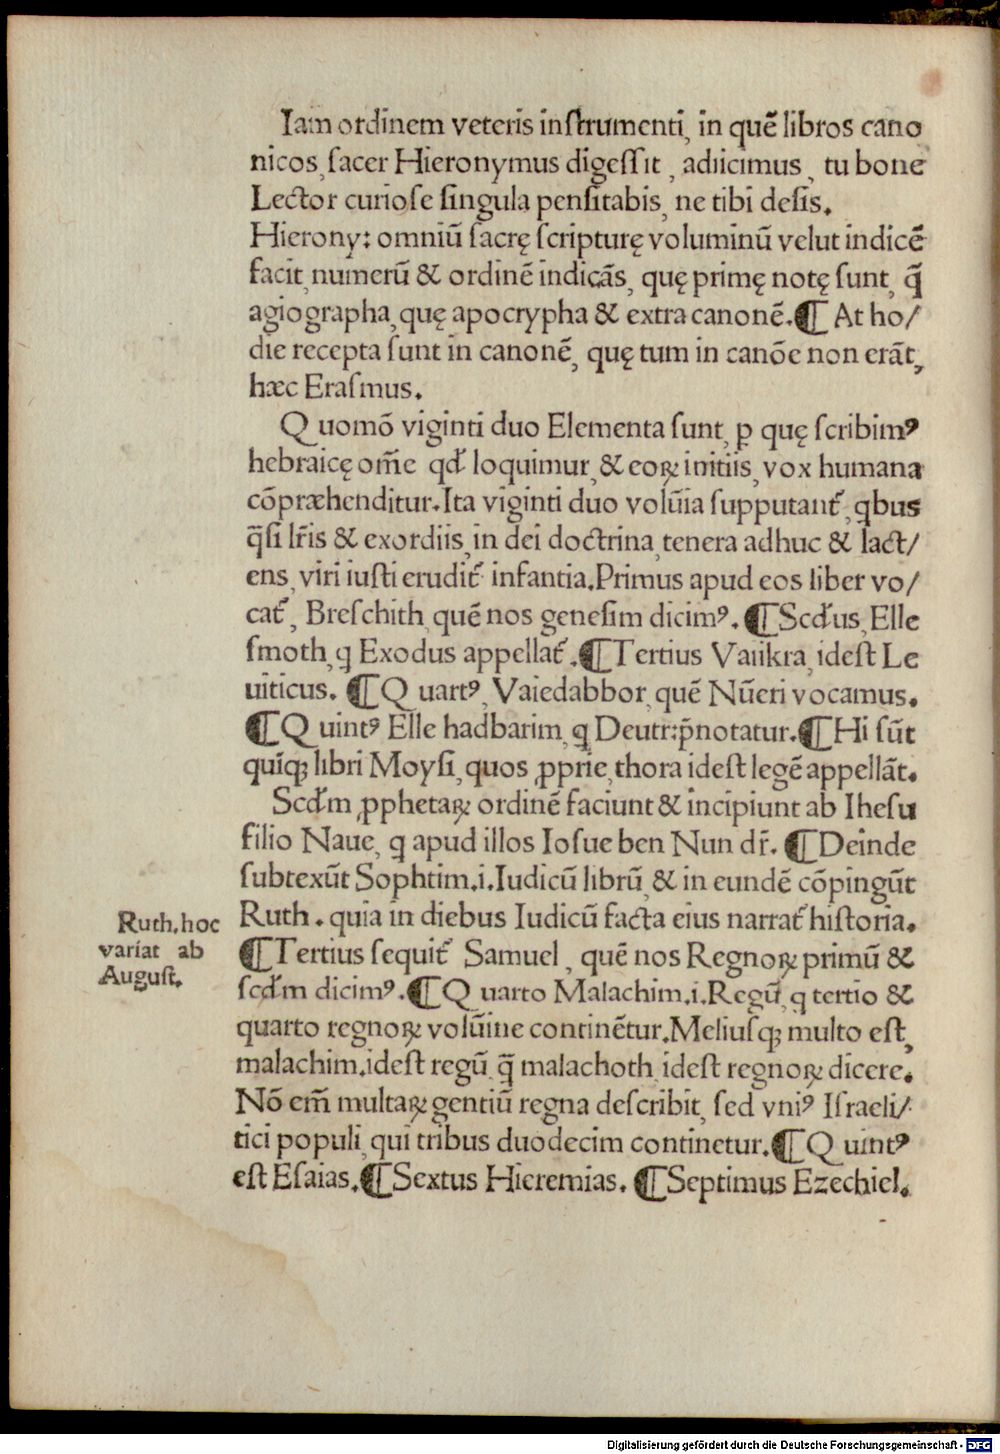 Iam ordinem veteris inſtrumenti, in quẽ libros cano
nicos, ſacer Hieronymus digeſſit, adiicimus, tu bone
Lector curioſe ſingula penſitabis, ne tibi deſis.
Hierony: omniũ ſacrę ſcripturę voluminũ velut indicẽ
facit, numerũ & ordinẽ indicãs, quę primę notę ſunt, q̃
agiographa, quę apocrypha & extra canonẽ. ¶ At ho/
die recepta ſunt in canonẽ, quę tum in canõe non erãt,
hæc Eraſmus.
Q uomõ viginti duo Elementa ſunt, ꝑ quę ſcribimꝰ
hebraicę om̃e qđ loquimur, & eoꝝ initiis, vox humana
cõpræhenditur. Ita viginti duo volũia ſupputant᷑, qbus
q̃ſi lr̃is & exordiis, in dei doctrina, tenera adhuc & lact/
ens, viri iuſti erudit᷑ infantia. Primus apud eos liber vo/
cat᷑, Breſchith, quẽ nos geneſim dicimꝰ. ¶ Scđus, Elle
ſmoth, q Exodus appellat᷑. ¶ Tertius Vaiikra, ideſt Le
uiticus. ¶ Q uartꝰ, Vaiedabbor, quẽ Nũeri vocamus.
¶ Q uintꝰ Elle hadbarim, q Deutr: p̃notatur. ¶ Hi ſũt
quĩqꝫ libri Moyſi, quos ꝓprie, thora ideſt legẽ appellãt.
Scđm ꝓphetaꝝ ordinẽ faciunt & incipiunt ab Iheſu
filio Naue, q apud illos Ioſue ben Nun dr̃. ¶ Deinde
ſubtexũt Sophtim .i. Iudicũ librũ, & in eundẽ cõpingũt
Ruth. quia in diebus Iudicũ facta eius narrat᷑ hiſtoria.
Ruth. hoc
variat ab
Auguſt.
¶ Tertius ſequit᷑ Samuel, quẽ nos Regnoꝝ primũ &
ſcđm dicimꝰ. ¶ Q uarto Malachim .i. Regũ, q tertio &
quarto regnoꝝ volũine continẽtur. Meliuſqꝫ multo eſt,
malachim. ideſt regũ, q̃ malachoth, ideſt regnoꝝ dicere.
Nõ em̃ multaꝝ gentiũ regna deſcribit, ſed vniꝰ Iſraeli/
tici populi, qui tribus duodecim continetur. ¶ Q uintꝰ
eſt Eſaias. ¶ Sextus Hieremias. ¶ Septimus Ezechiel.
Digitalisierung gefördert durch die Deutsche Forschungsgemeinschaft - DFG